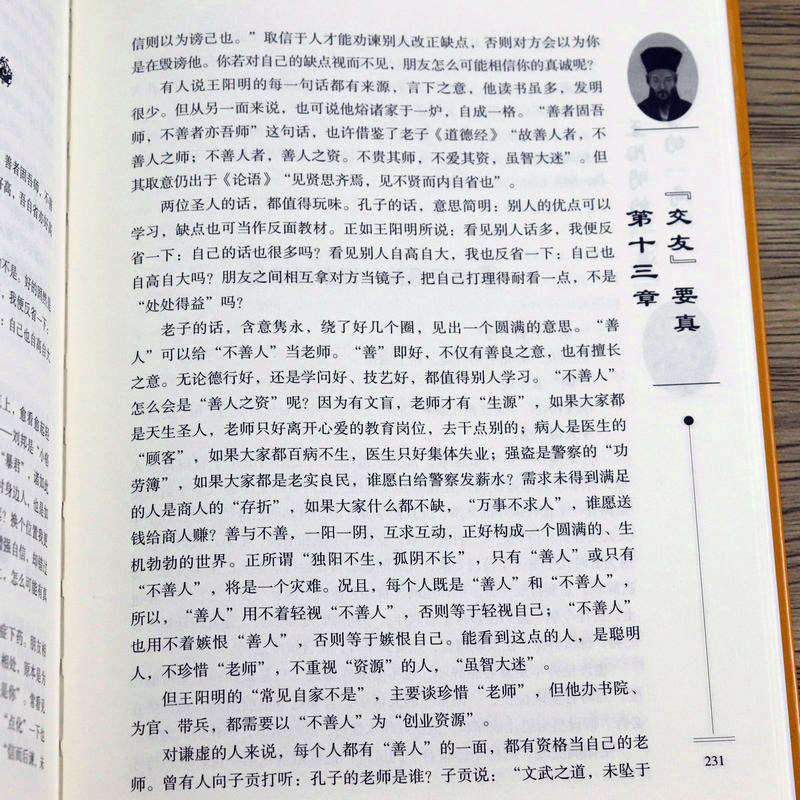 信则以为谤己也。”取信于人才能劝谏别人改正缺点，否则对方会以为你
是在毁谤他。你若对自己的缺点视而不见，朋友怎么可能相信你的真诚呢？
有人说王阳明的每一句话都有来源，言下之意，他读书虽多，发明
很少。但从另一面来说，也可说他熔诸家于一炉，自成一格。“善者固吾
师，不善者亦吾师”这句话，也许借鉴了老子《道德经》“故善人者，不
善人之师；不善人者，善人之资。不贵其师，不爱其资，虽智大迷”。但
其取意仍出于《论语》“见贤思齐焉，见不贤而内自省也”。
两位圣人的话，都值得玩味。孔子的话，意思简明：别人的优点可以
学习，缺点也可当作反面教材。正如王阳明所说：看见别人话多，我便反
省一下：自己的话也很多吗？看见别人自高自大，我也反省一下：自己也
自高自大吗？朋友之间相互拿对方当镜子，把自己打理得耐看一点，不是
“处处得益”吗？
老子的话，含意隽永，绕了好几个圈，见出一个圆满的意思。“善
人”可以给“不善人”当老师。“善”即好，不仅有善良之意，也有擅长
之意。无论德行好，还是学问好、技艺好，都值得别人学习。“不善人”
怎么会是“善人之资”呢？因为有文盲，老师才有“生源”，如果大家都
是天生圣人，老师只好离开心爱的教育岗位，去干点别的；病人是医生的
“顾客”，如果大家都百病不生，医生只好集体失业；强盗是警察的“功
劳簿”，如果大家都是老实良民，谁愿白给警察发薪水？需求未得到满足
的人是商人的“存折”，如果大家什么都不缺，“万事不求人”，谁愿送
钱给商人赚？善与不善，一阳一阴，互求互动，正好构成一个圆满的、生
机勃勃的世界。正所谓“独阳不生，孤阴不长”，只有“善人”或只有
“不善人”，将是一个灾难。况且，每个人既是“善人”和“不善人”，
所以，“善人”用不着轻视“不善人”，否则等于轻视自己；“不善人”
也用不着嫉恨“善人”，否则等于嫉恨自己。能看到这点的人，是聪明
人，不珍惜“老师”，不重视“资源”的人，“虽智大迷”。
但王阳明的“常见自家不是”，主要谈珍惜“老师”，但他办书院、
为官、带兵，都需要以“不善人”为“创业资源”。
对谦虚的人来说，每个人都有“善人”的一面，都有资格当自己的老
师。曾有人向子贡打听：孔子的老师是谁？子贡说：“文武之道，未坠于
第十三章
『交友』要真
231